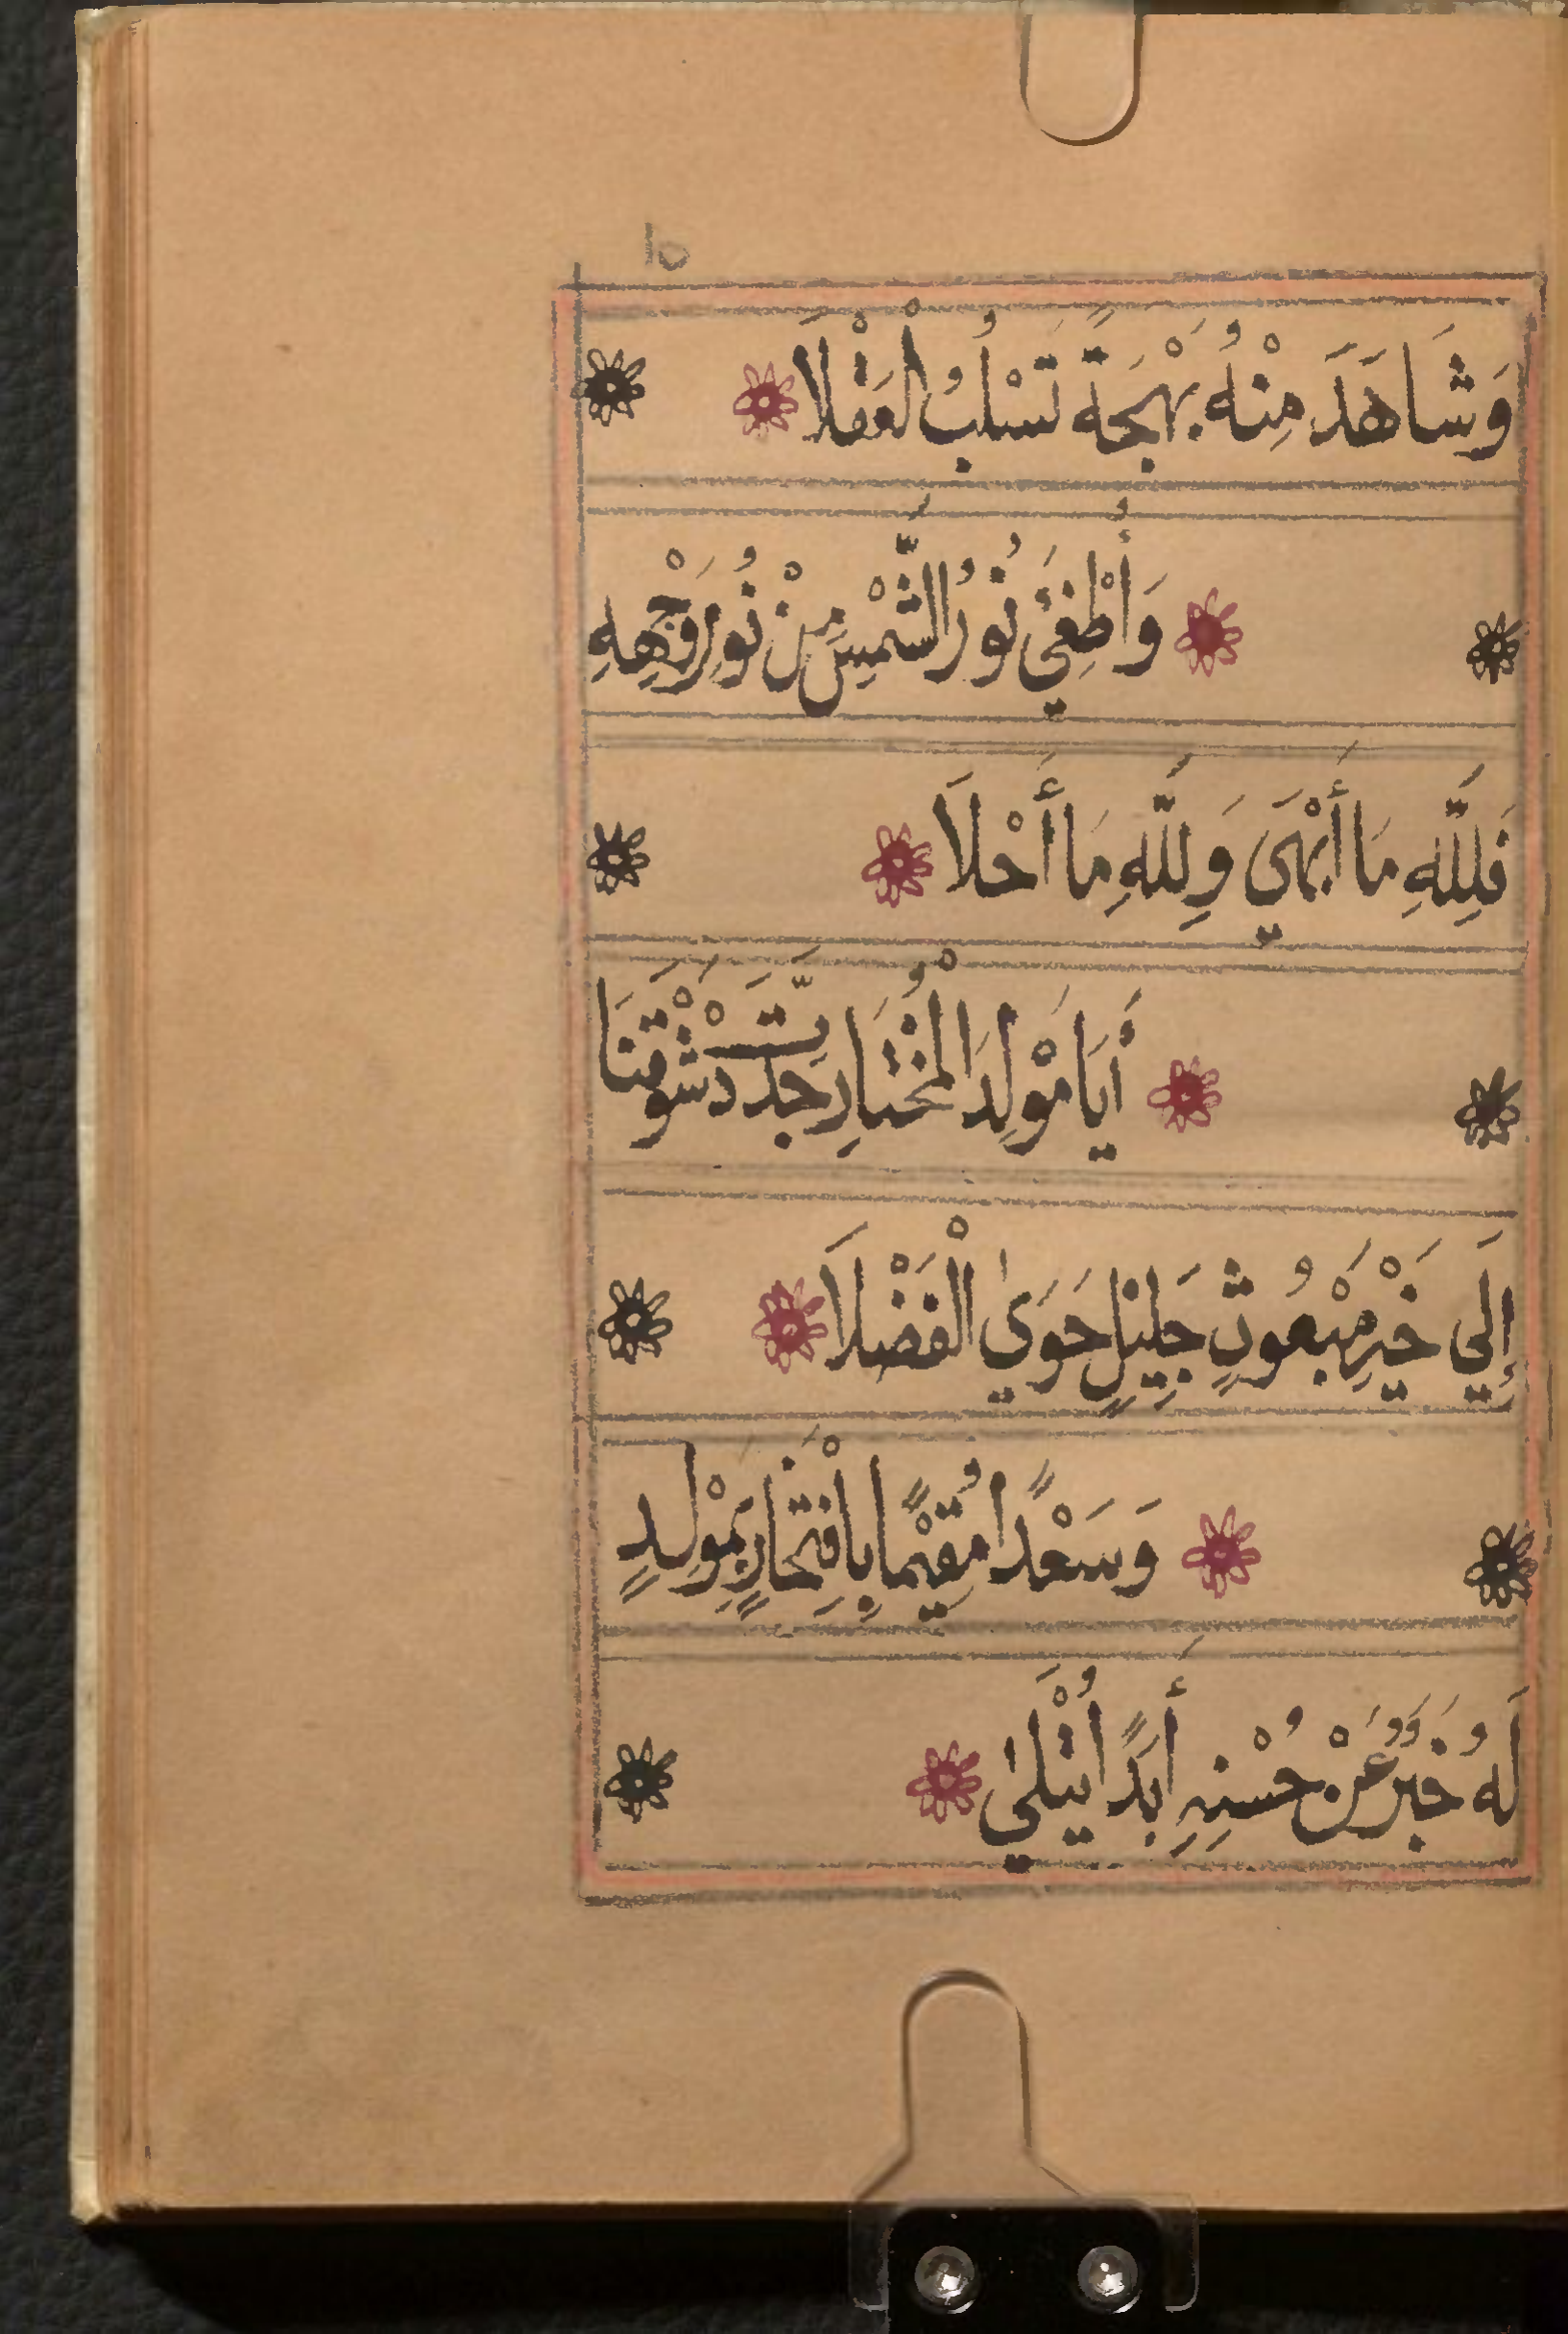 ١٥
وَشَاهَدَ مِنْهُ بَهْجَةً تَسْلُبُ الْعَقْلَا
وَأُطْفِئَ نُورُ الشَّمْسِ مِنْ نُورِ وَجْهِهِ
فَلِلَّهِ مَا أَبْهَي وَلِلَّهِ مَا أَحْلَا
أَيَا مَوْلِدَ الْمُخْتَارِ جَدَّدْتَ شَوْقَنَا
إِلَي خَيْرِ مَبْعُوثٍ جَلِيْلٍ حَوَي الْفَضْلَا
وَسَعْدًا مُقِيْمًا بِافْتِخَارٍ بِمَوْلِدٍ
لَهُ خَبَرٌ عَنْ حُسْنِهِ أَبَدًا يُتْلَي